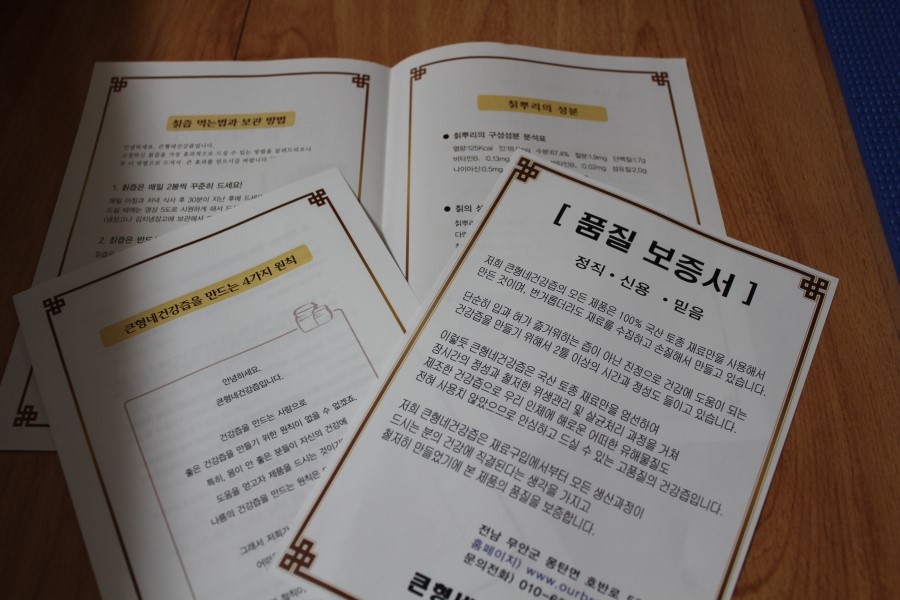 칡즙 먹는법과 보관 방법
"안녕하세요. 큰형네건강즙입니다.
1. 칡즙은 매일 2봉씩 꾸준히 드세요!
매일 아침과 저녁 식사 후 30분이 지난 후에
드실 때에는 영상 5도로 시원하게 해서
(냉장고나 김치냉장고에 보관해서
2. 칡즙은 반드
칡뿌리의 성분
● 칡뿌리의 구성성분 분석표
열량:125Kcal 수분:67.4% 철분:1.9mg 단백질:1.7g
비타민B₁ 0.13mg 0.02mg 섬유질:2.0g
나이아신:0.5mg
● 칡의 성
칡뿌리
큰형네건강즙을 만드는 4가지 원칙
안녕하세요.
큰형네건강즙입니다.
건강즙을 만드는 사람으로
좋은 건강즙을 만들기 위한 원칙이 없을 수 없겠죠.
특히, 몸이 안 좋은 분들이 자신의 건강에
도움을 얻고자 제품을 드시는 것이기
나름의 건강즙을 만드는 원칙은
그래서 저희가
[ 품질 보증서 ]
정직 · 신용 · 믿음
저희 큰형네건강즙의 모든 제품은 100% 국산 토종 재료만을 사용해서
만든 것이며, 번거롭더라도 재료를 수집하고 손질해서 만들고 있습니다.
단순히 입과 혀가 즐거워하는 즙이 아닌 진정으로 건강에 도움이 되는
건강즙을 만들기 위해서 2틀 이상의 시간과 정성도 들이고 있습니다.
이렇듯 큰형네건강즙은 국산 토종 재료만을 엄선하여
장시간의 정성과 철저한 위생관리 및 살균처리 과정을 거쳐
제조한 건강즙으로 우리 인체에 해로운 어떠한 유해물질도
전혀 사용치 않았으므로 안심하고 드실 수 있는 고품질의 건강즙입니다.
저희 큰형네건강즙은 재료구입에서부터 모든 생산과정이
드시는 분의 건강에 직결된다는 생각을 가지고
철저히 만들었기에 본 제품의 품질을 보증합니다.
전남 무안군 몽탄면 호반로
홈페이지) www.ourb
문의전화) 010-6
큰형